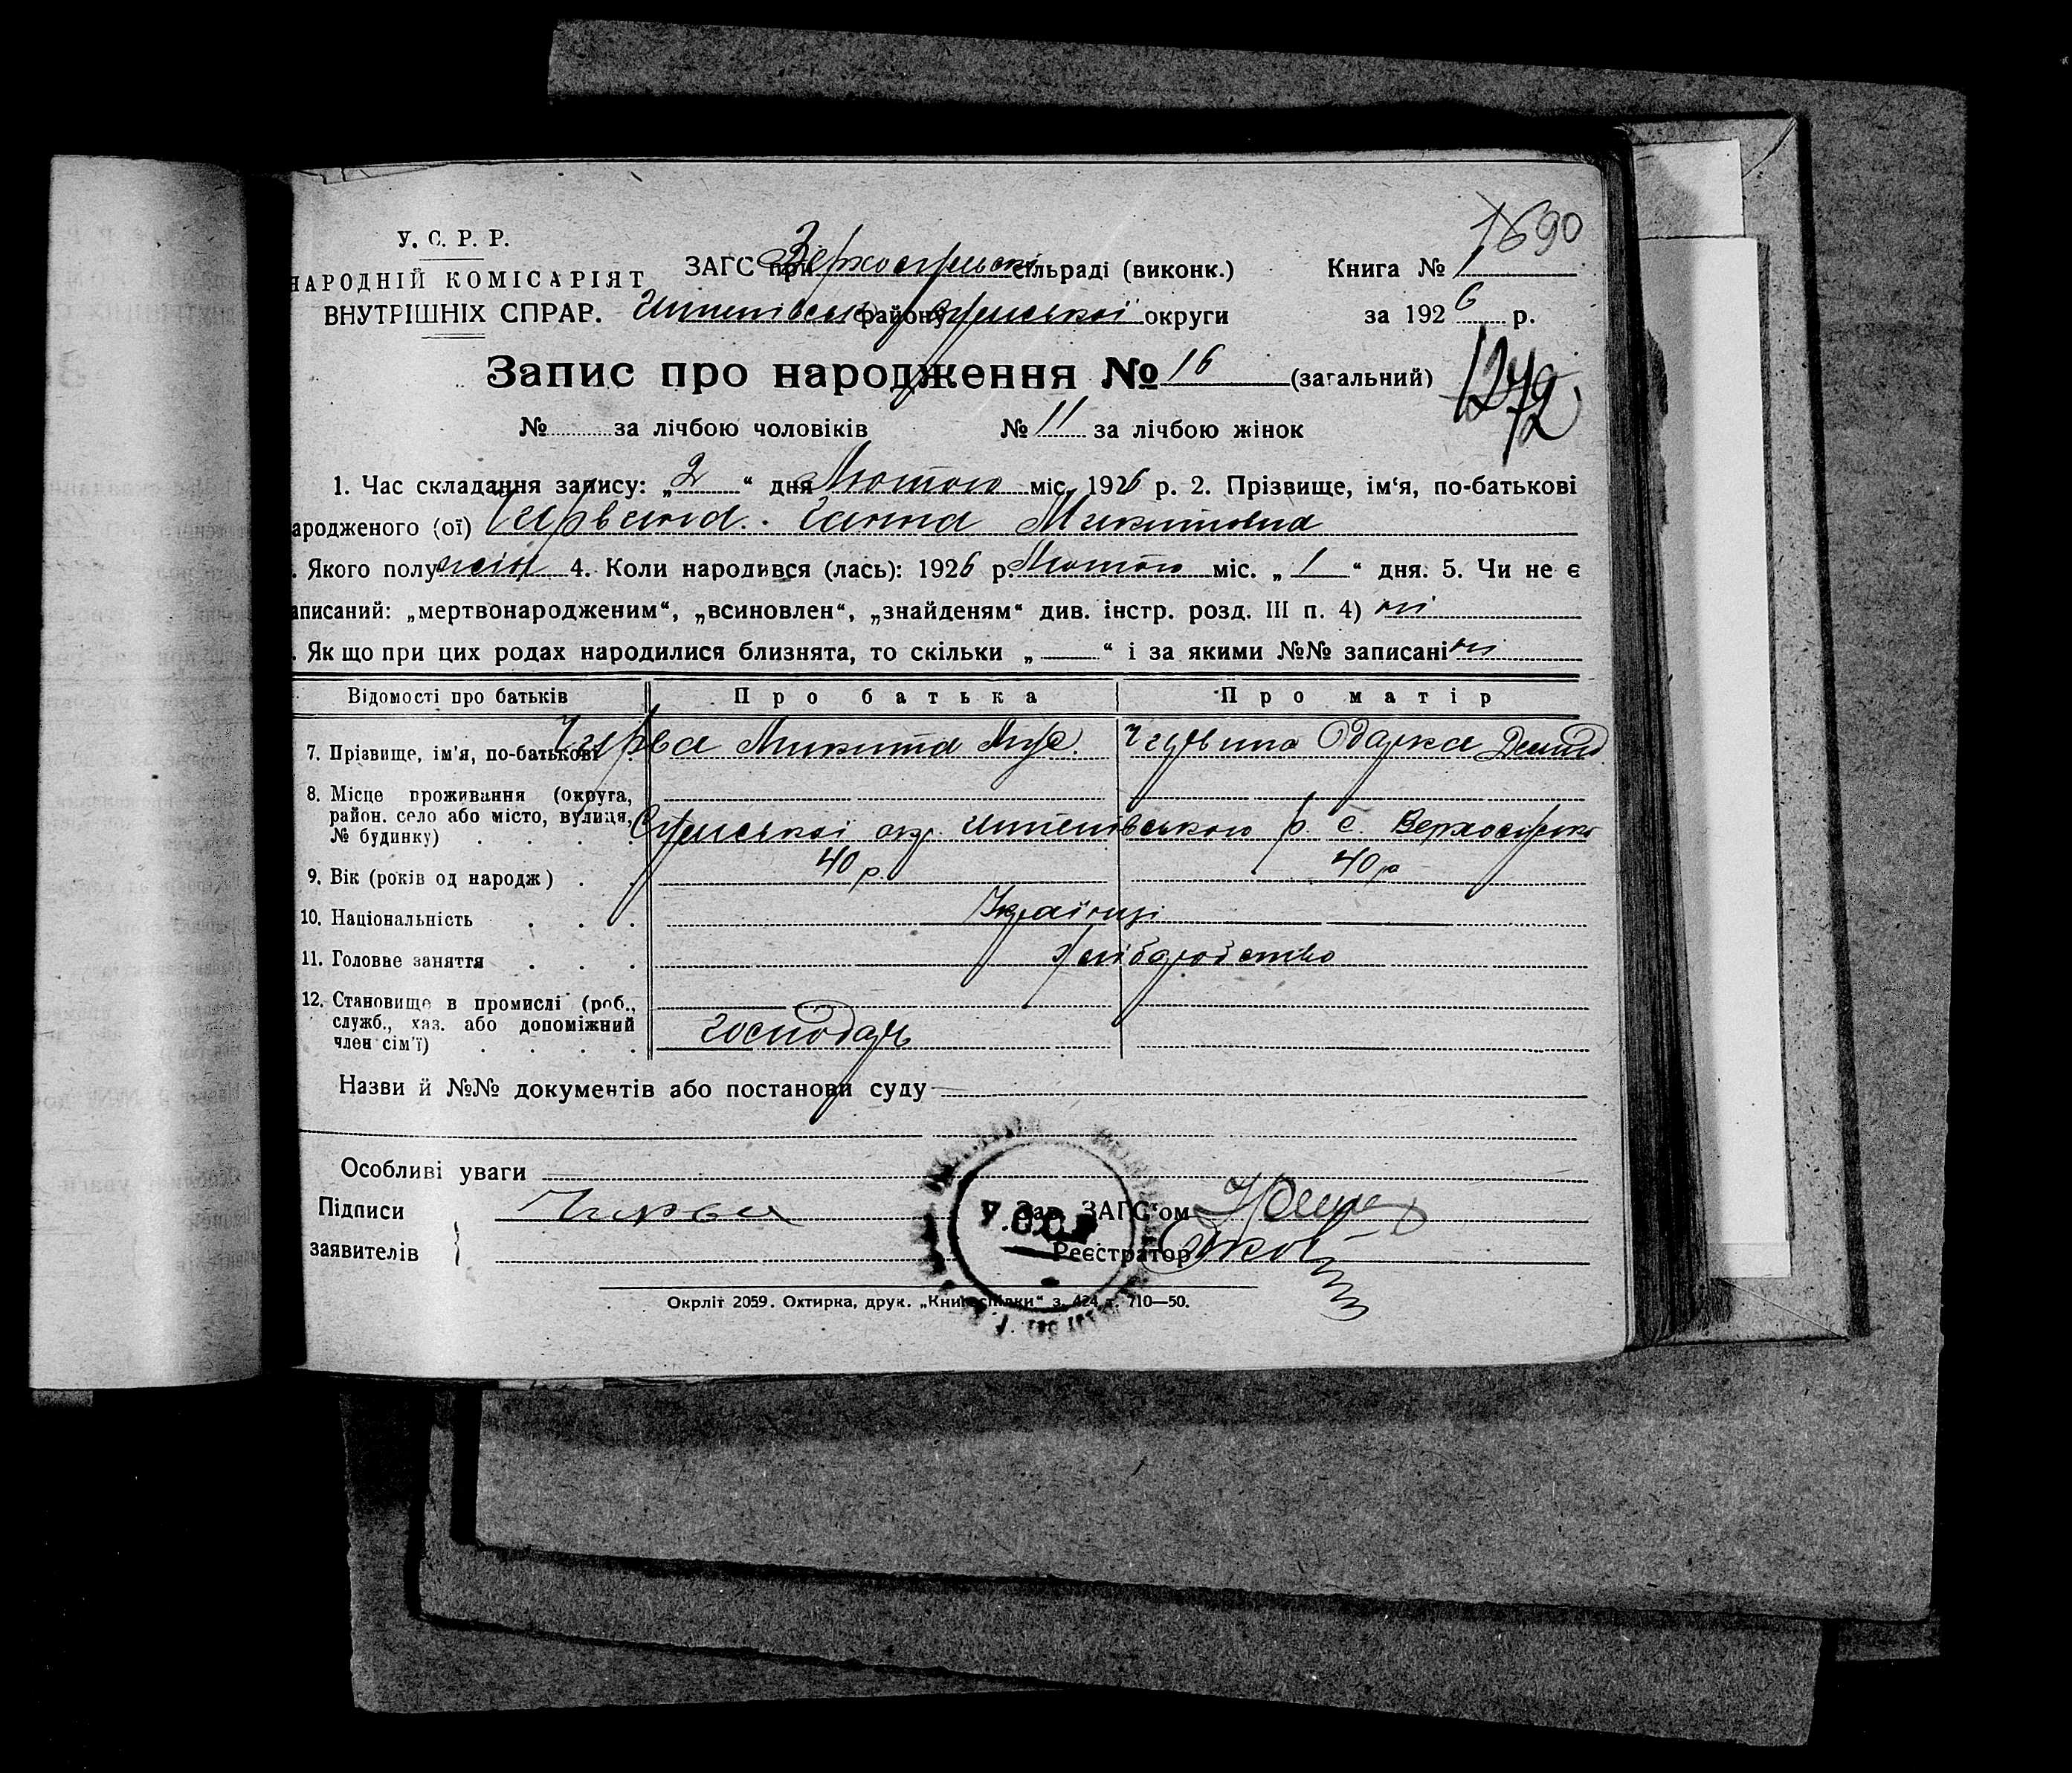 1690
У. С. Р. Р.
НАРОДНІЙ КОМІСАРІЯТ
ВНУТРІШНІХ СПРАВ.
ЗАГС при Верхосирьск сільраді (виконк.)
Штепівськ району Сумської округи
Книга № 1
за 1926 р.
Запис про народження № 16 (загальний)
1272
№ за лічбою чоловіків № 11 за лічбою жінок
1. Час складання запису: „2“ дня Лютого міс. 1926 р. 2. Прізвище, ім‘я, по-батькові
ародженого (ої) Ганна Микитовна
. Якого полу жін 4. Коли народився (лась): 1926 р. Лютого міс. „1“ дня. 5. Чи не є
аписаний: „мертвонародженим“, „всиновлен“, „знайденям“ див. інстр. розд. III п. 4) ні
. Якщо при цих родах народилися близнята, то скільки „ “ і за якими №№ записані ні
Відомості про батьків Про батька Про матір
7. Прізвище, ім'я, по-батькові Чирва Микита Одарка Демид
8. Місце проживання (округа,
район. село або місто, вулиця,
№ будинку)
Сумської окр. Штепівського р. с. Верхосирка
9. Вік (років од народж) 40 р. 40 р
10. Національність Українці
11. Головне заняття Хліборобство
12. Становище в промислі (роб.,
служб., хаз. або допоміжний
член сім'ї)
Господарь
Назви й №№ документів або постанови суду
Особливі уваги
Підписи Чирва Зав. ЗАГС'ом
заявителів Реєстратор
Окрліт 2059. Охтирка, друк. „Книгоспілки“ з. 424 т. 710—50.